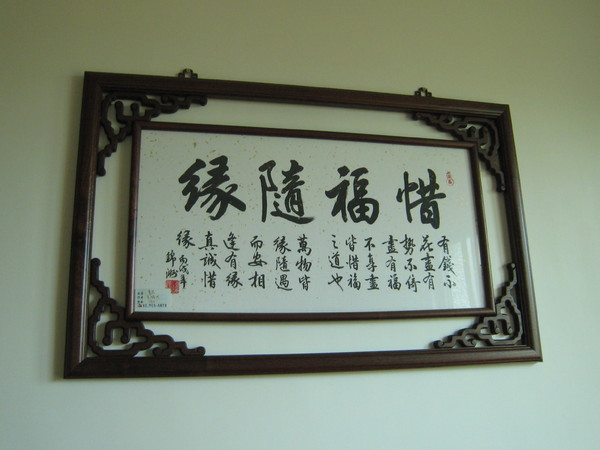 惜福隨緣
有錢不
花盡有
勢不倚
盡有福
不享盡
皆惜福
之道也
萬物皆
緣隨遇
而安相
逢有緣
真誠惜
緣
丙戌年